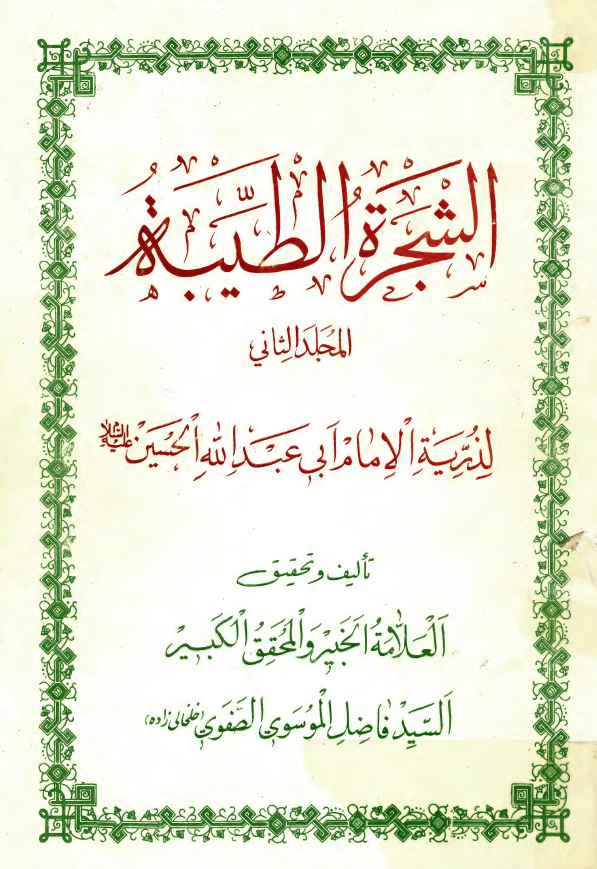 الشجرة الطيبة
المجلد الثاني
لذرية الإمام أبي عبد الله الحسين عليه السلام
تأليف وتحقيق
العلامة الخبير والمحقق الكبير
السيد فاضل الموسوي الصفوي (خلخالي زاده)